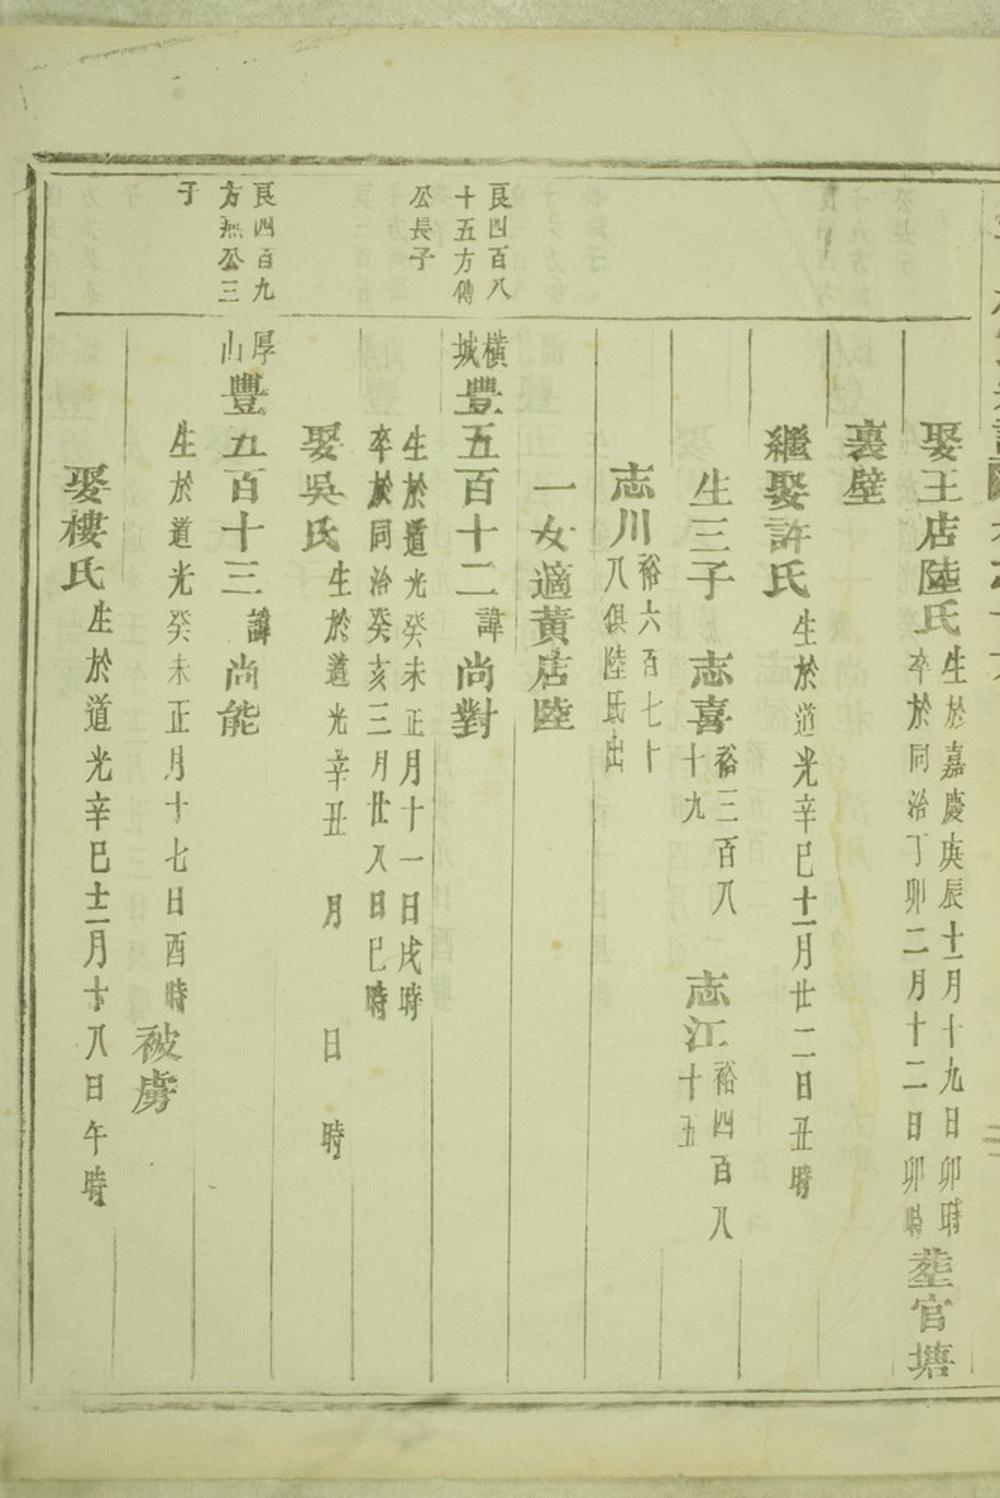 娶王店陸氏
生於嘉慶庚辰十一月十九日卯時
卒於同治丁卯二月十二日卯時
塟官塘
裏壁
繼娶許氏
生於道光辛巳十一月廿二日丑時
生三子
志喜
裕三百八
十九
志江
裕四百八
十五
志川
裕六百七十
八俱陸氏出
一女適黃店陸
艮四百八
十五方傳
公長子
橫
城
豐五百十二
諱
尚對
生於道光癸未正月十一日戌時
卒於同治癸亥三月廿八日巳時
娶吳氏
生於道光辛丑 月 日 時
艮四百九
方燕公三
子
厚
山
豐五百十三
諱
尚能
生於道光癸未正月十七日酉時
被虜
娶樓氏
生於道光辛巳十二月十八日午時